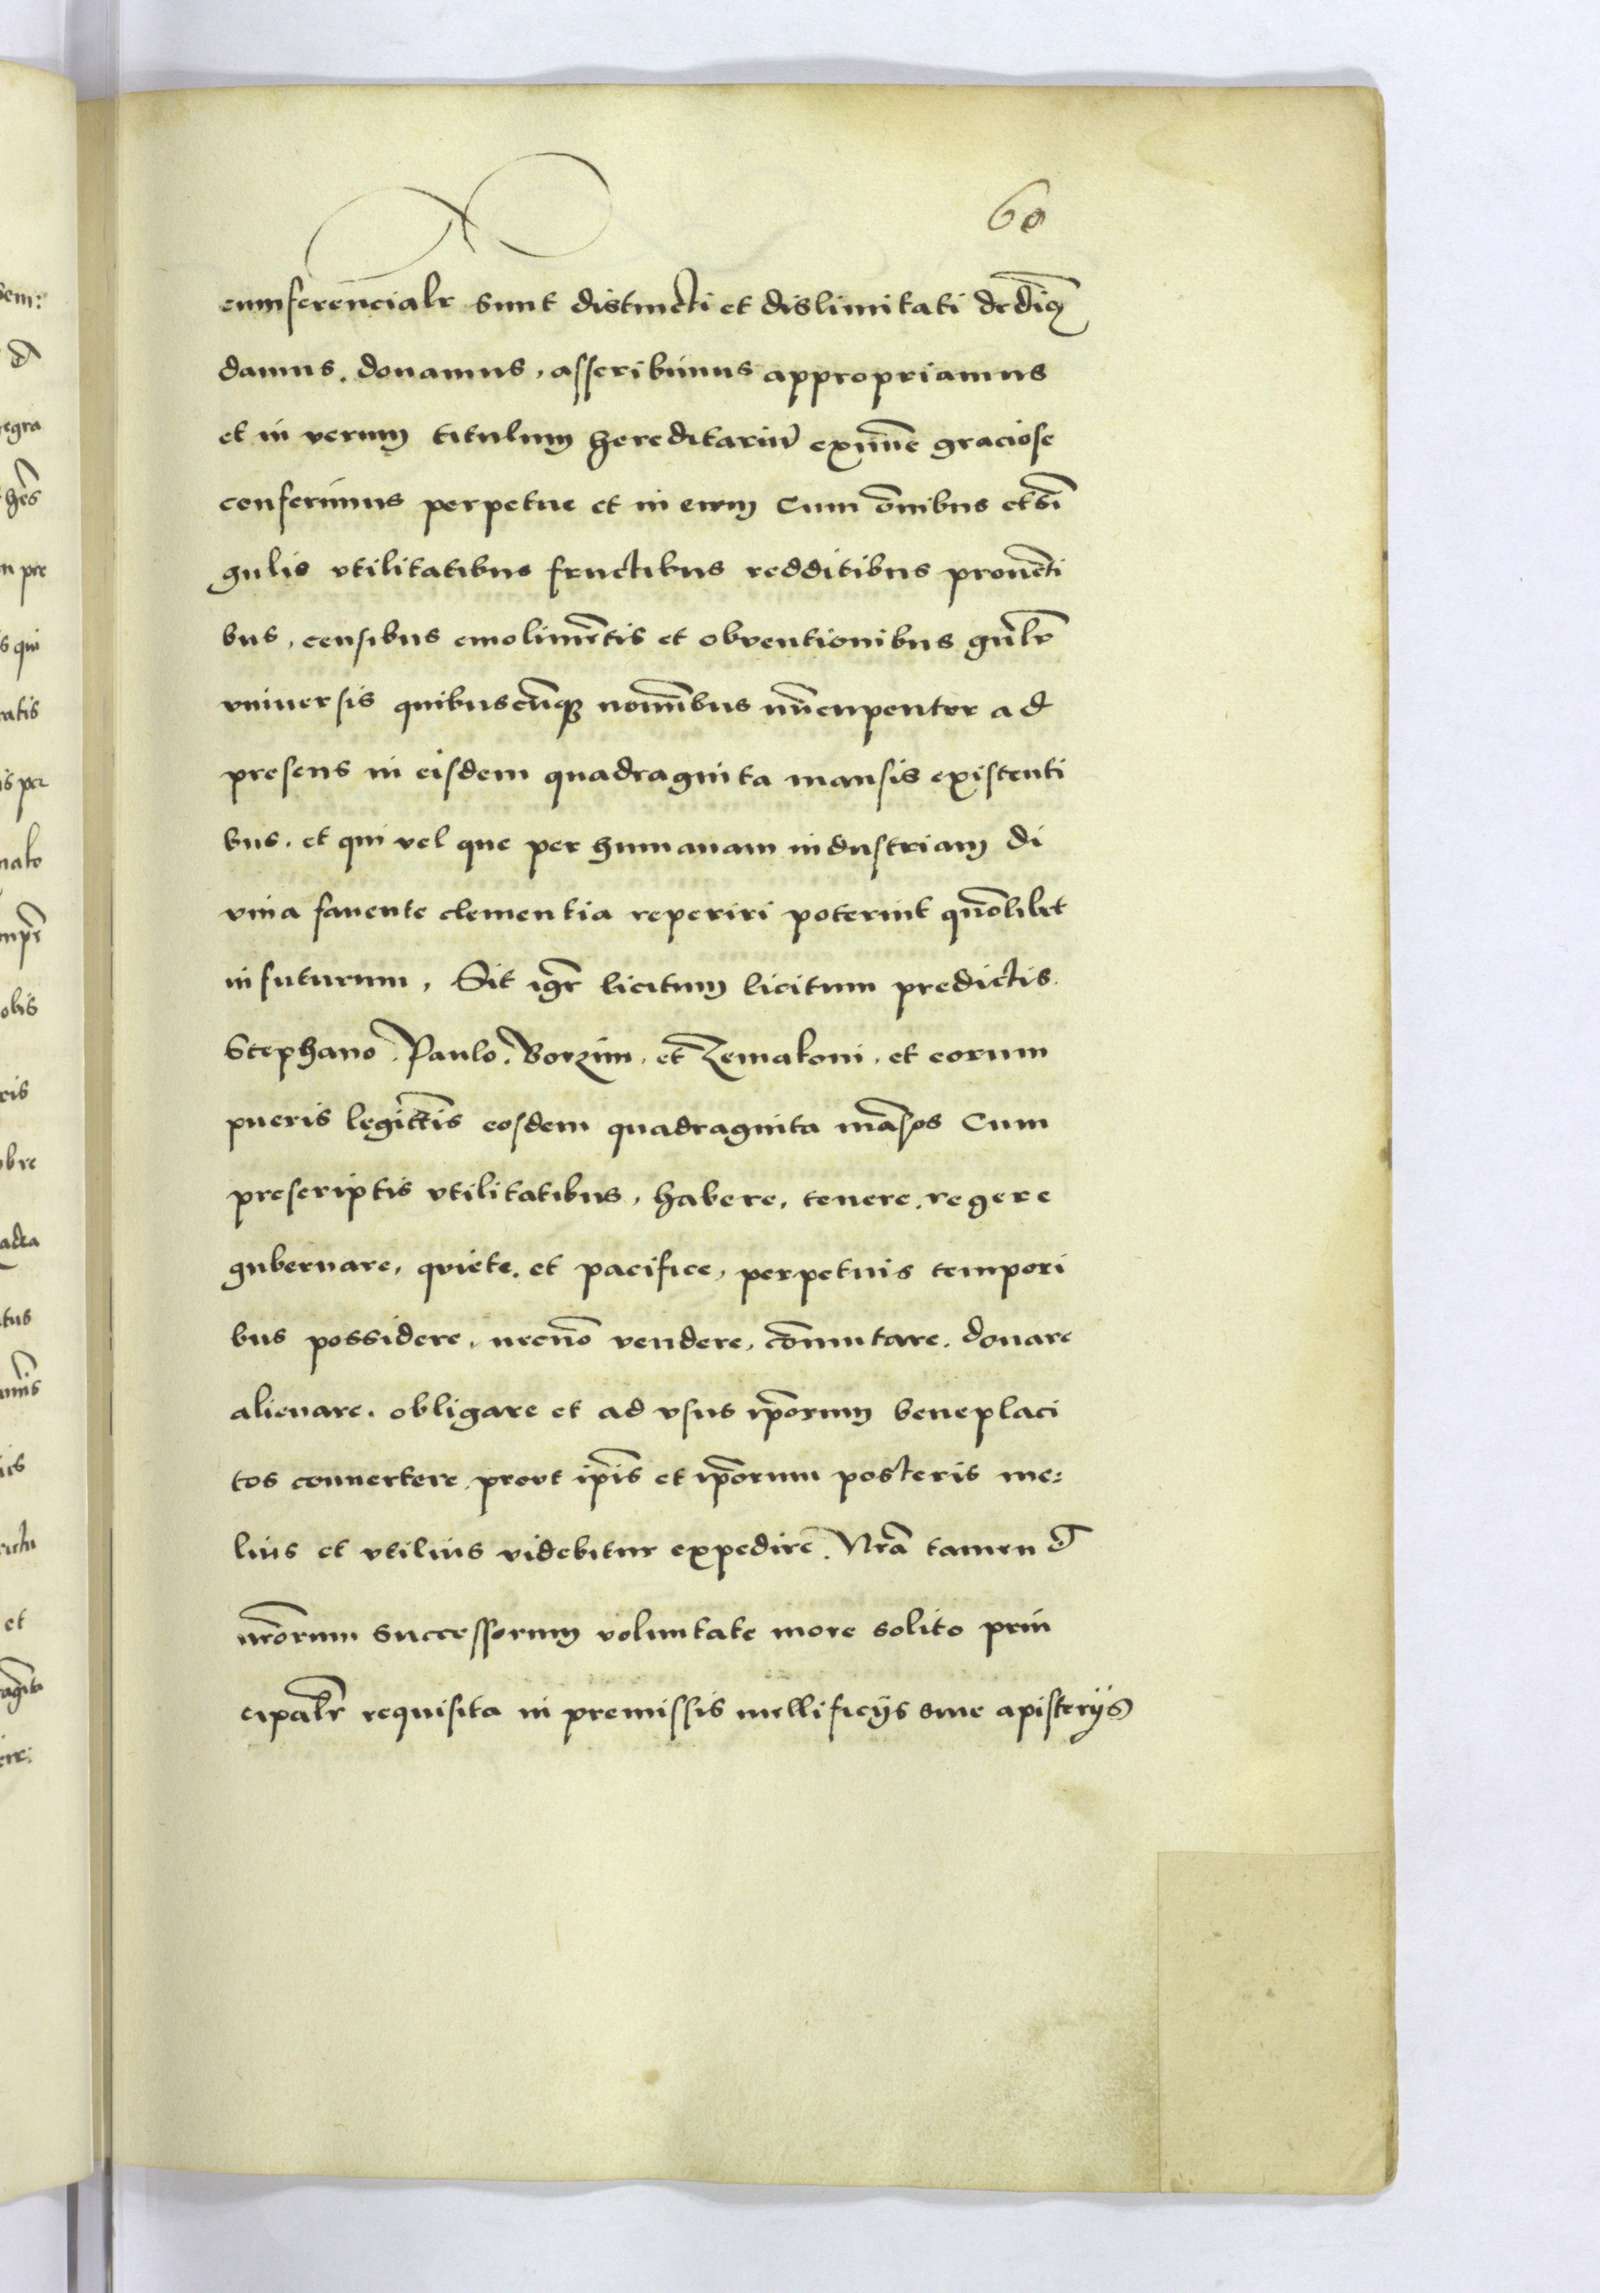 60
cumferencialr sunt distincti et dislimitati dedimꝯ
damus. donamus, asscribimus appropriamus
et in verum titulum hereditariū eximie graciose
conferimus perpetue et in evum Cum om̄ibus et sī
gulis vtilitatibus fructibus redditibus prouēti
bus, censibus emolimētis et obventionibus gn̄alr
vniuersis quibuscūqꝫ nomībus nūcupentur ad
presens in eisdem quadraginta mansis existenti
bus. et qui vel que per humanam industriam di
vina favente clementia reperiri poterint quōlibet
in futurum, Sit igr̄ licitum licitum predictis.
Stephano. Paulo. Borzim. et Zemakoni. et eorum
pueris legittīs eosdem quadraginta māsos Cum
prescriptis vtilitatibus, habere, tenere, regere
gubernare, qviete. et pacifice, perpetuis tempori
bus possidere, necnō vendere, cōmutare. donare
alienare. obligare et ad vsus ip̄orum beneplaci
tos conuertere, provt ip̄is et ip̄orum posteris me:
lius et vtilius videbitur expedire. Nr̄a tamen &
nr̄orum successorum voluntate more solito prin
cipalr̄ requisita in premissis mellificijs siue apisterijs